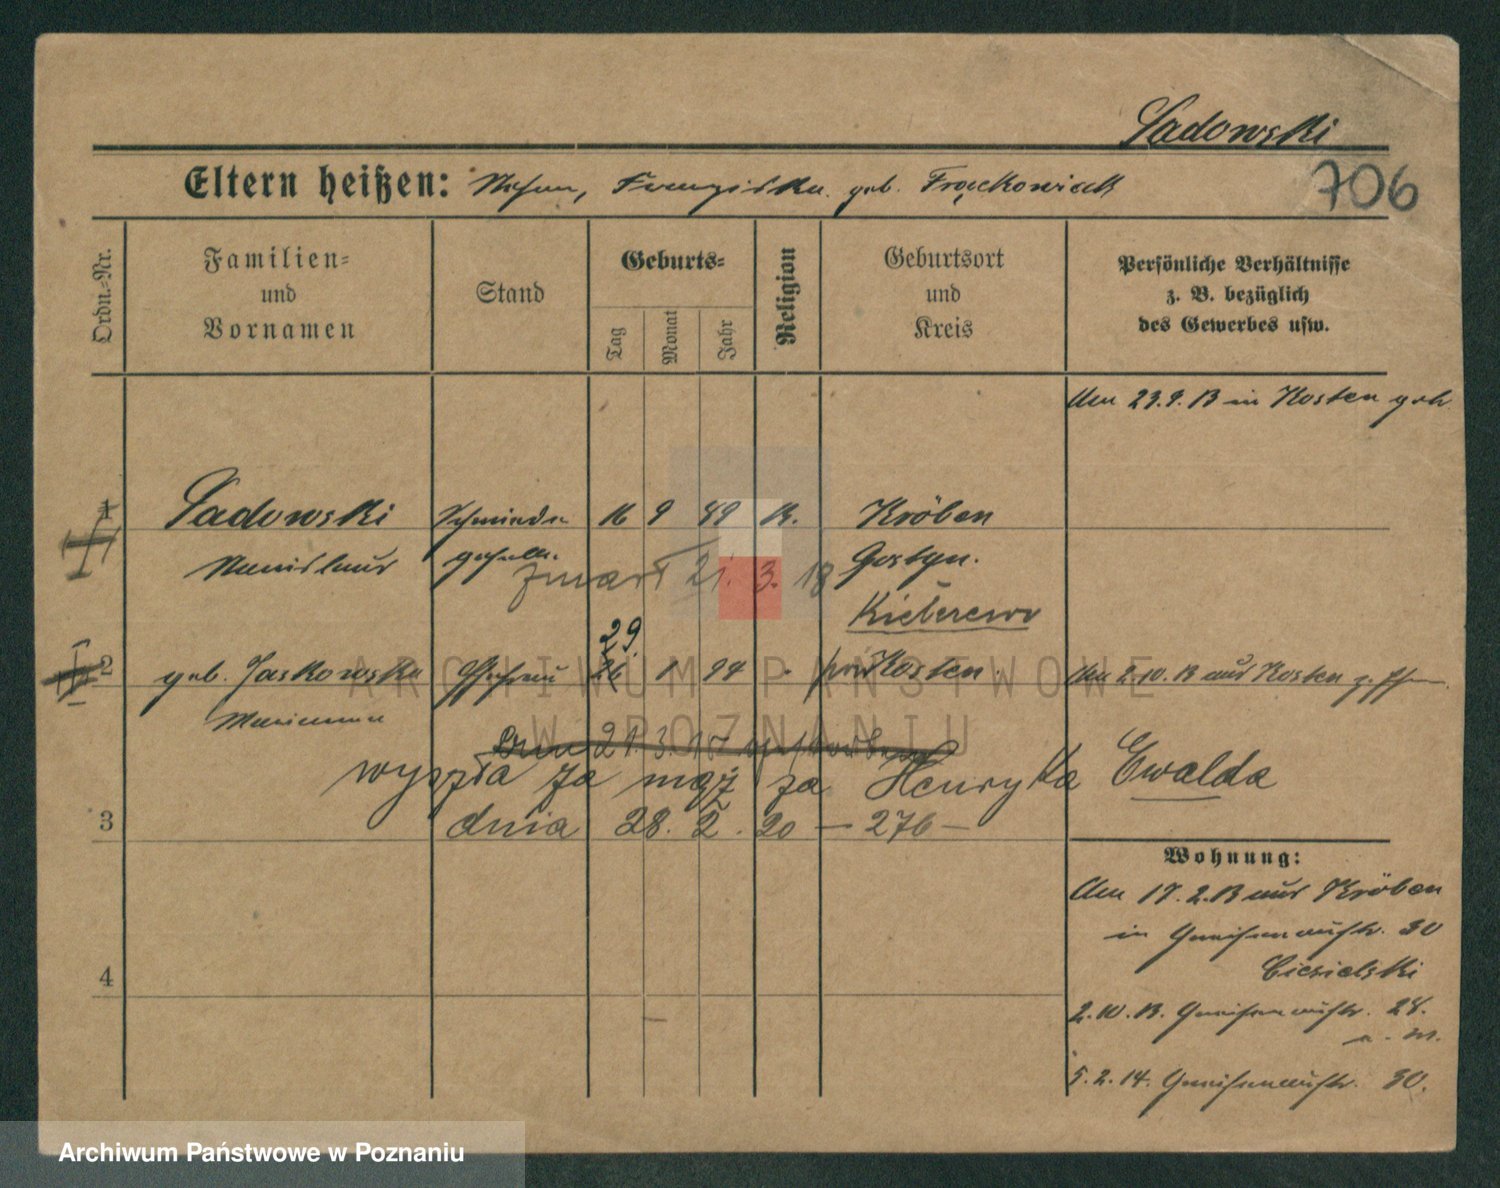 Sadowski
706
Eltern heißen: Franziska geb. Frąckowiack
Ordn.-Nr.
Familien- und Vornamen
Stand
Geburts-
Tag
Monat
Jahr
Religion
Geburtsort und Kreis
Persönliche Verhältnisse z. B. bezüglich des Gewerbes usw.
Am 23.9.13 in Kosten
1 Sadowski Schmiede 16 9 89 K. Kröben
Stanislaus geselle. Gostyn.
zmarł 21. 3. 18
29.
2 geb. Jaskowska Ehefrau 26 1 94 Kosten
Am 2.10.13 aus Kosten
Marianna
Am 21.3.17 gestorben
wyszła za mąż za Henryka Ewalda
3 dnia 28. 2. 20 — 276 —
Wohnung:
Am 17.2.13 aus Kröben
in Gneisenaustr. 30
Ciesielski
4
2.10.13. Gneisenaustr. 28.
5.2.14. Gneisenaustr. 30.
ARCHIWUM PAŃSTWOWE
W POZNANIU
Archiwum Państwowe w Poznaniu